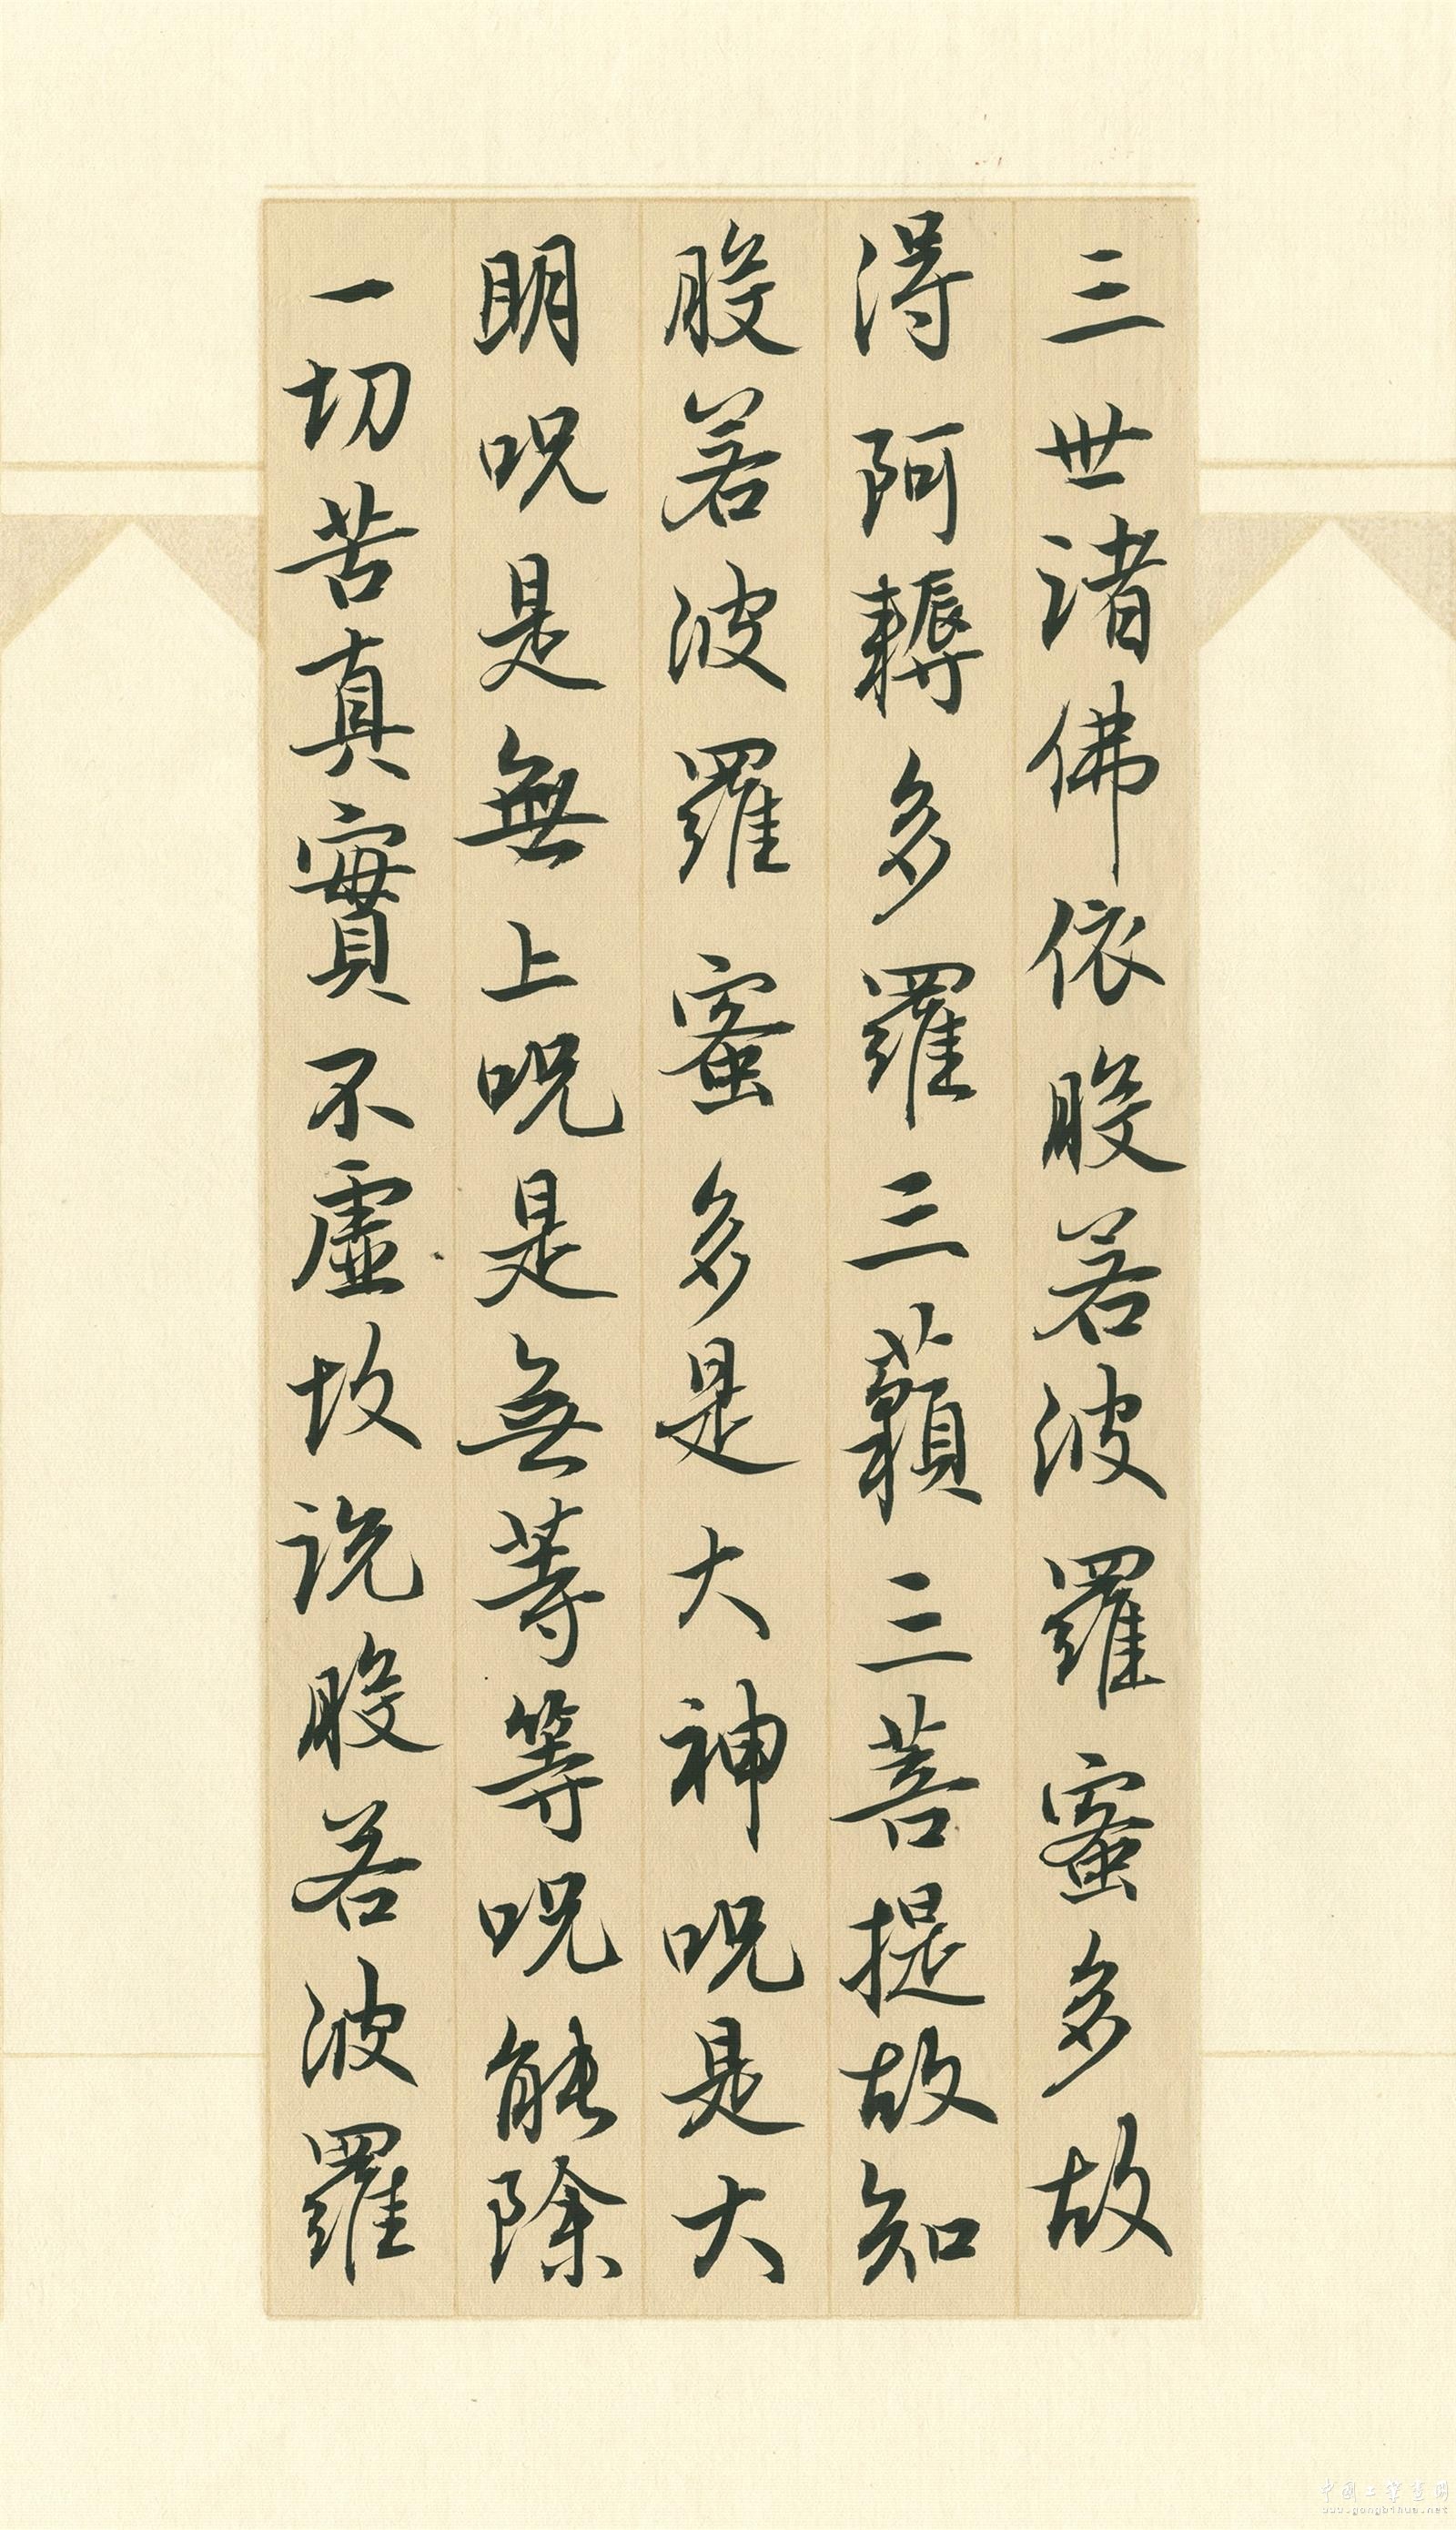 三世諸佛依般若波羅蜜多故
得阿耨多羅三藐三菩提故知
般若波羅蜜多是大神咒是大
明咒是無上咒是無等等咒能除
一切苦真實不虛故說般若波羅
中国工笔画网
www.gongbihua.net